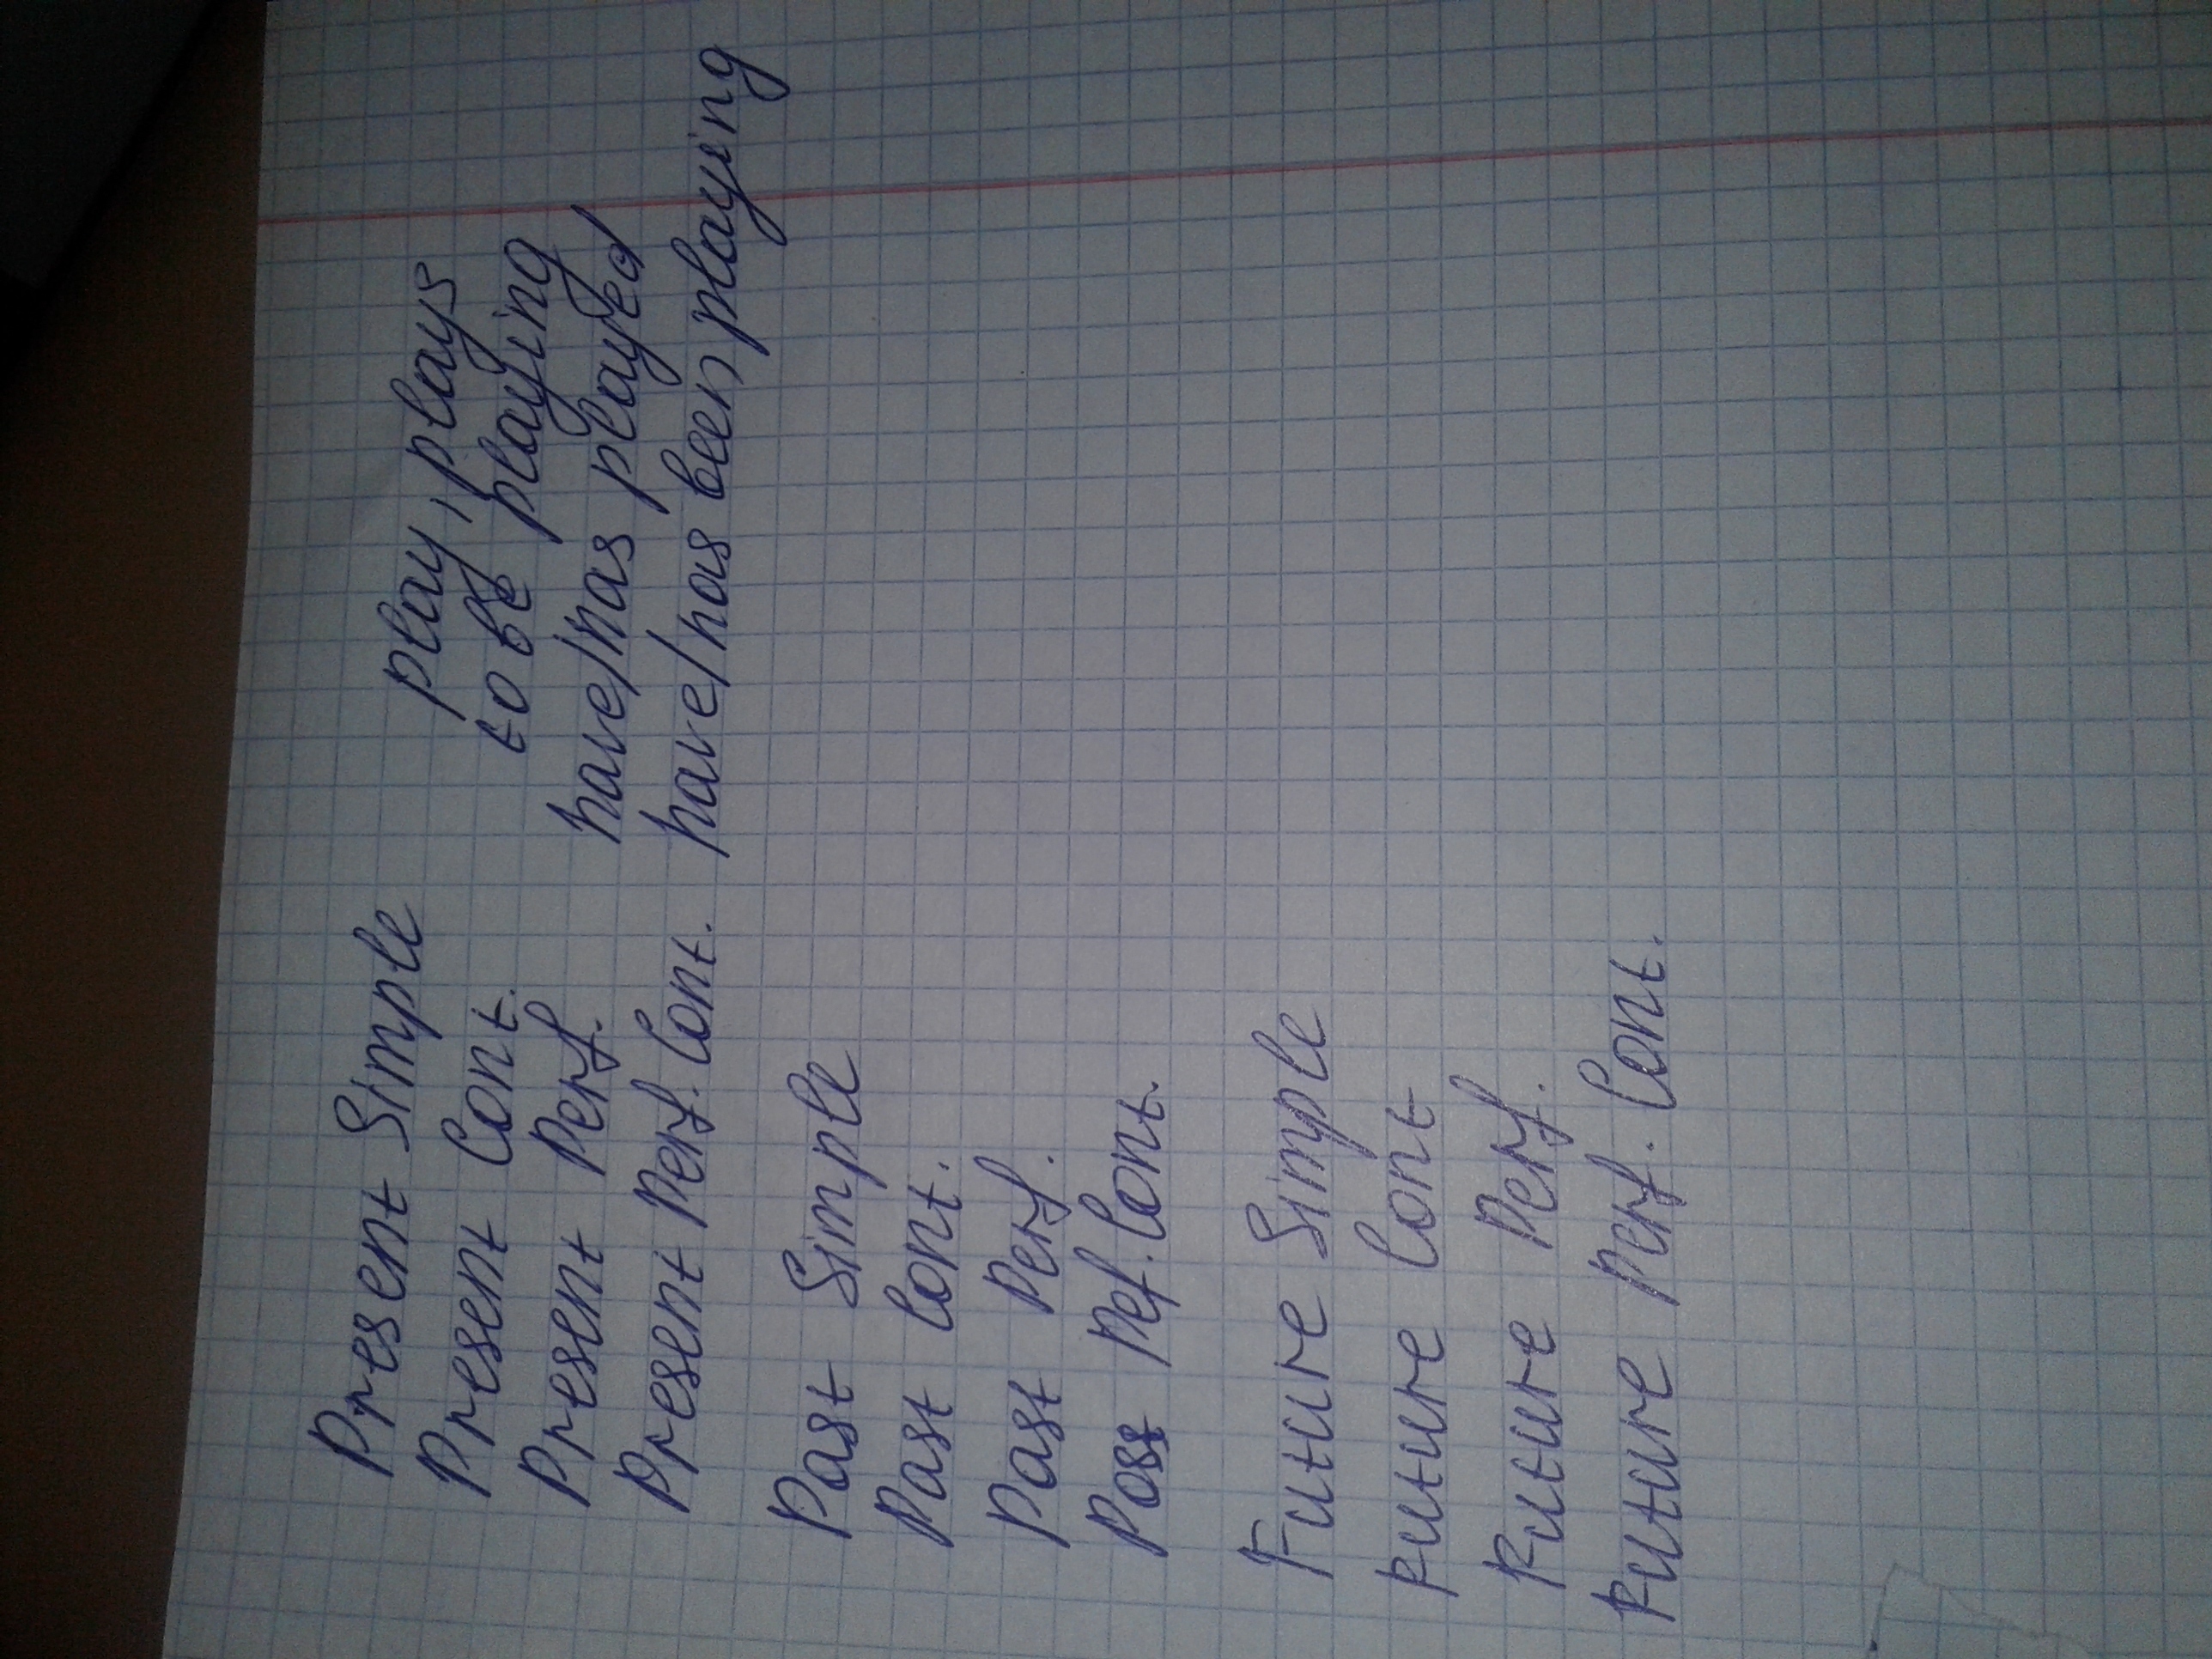 Present Simple play, plays
Present Cont. to be playing
Present Perf. have/has played
Present Perf. Cont. have/has been playing
Past Simple
Past Cont.
Past Perf.
Past Pef. Cont.
Future Simple
Future Cont
Future Perf.
Future Perf. Cont.